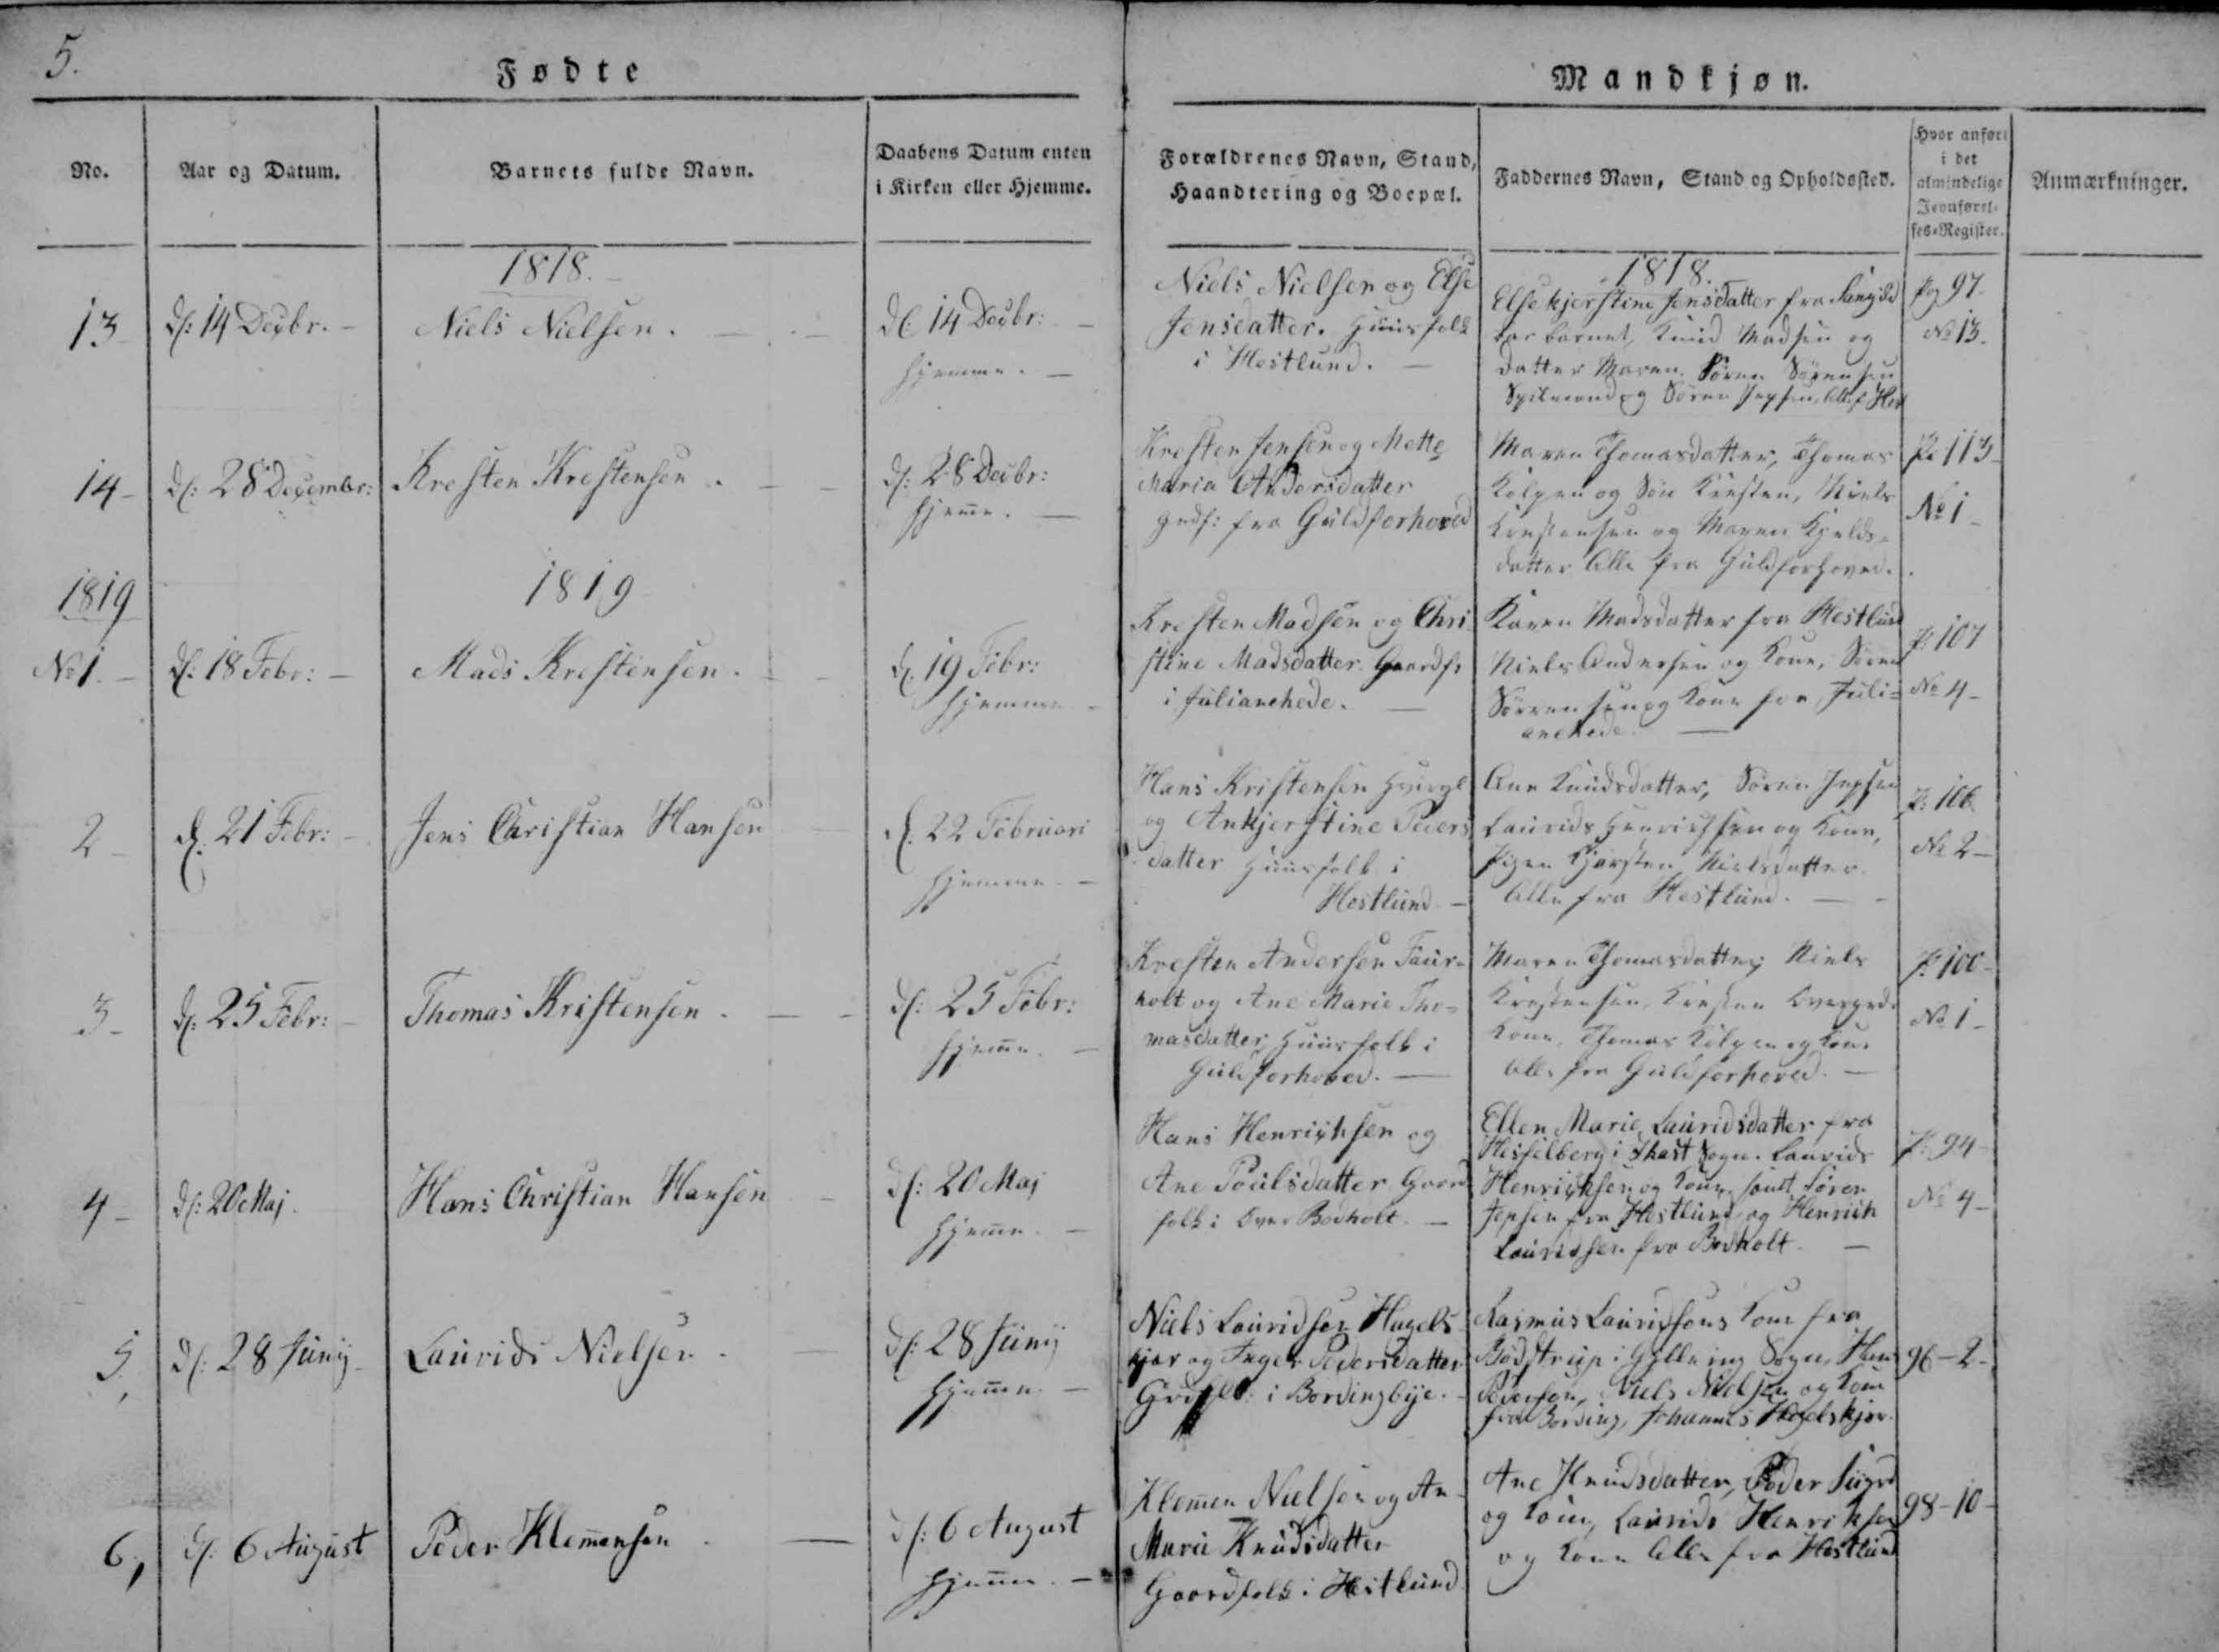 5.
Fødte
Mandkjøn.
No.
Aar og Datum.
Barnets fulde Navn.
Daabens Datum enten
i Kirken eller Hjemme.
Forældrenes Navn, Stand,
Haandtering og Boepæl.
Faddernes Navn, Stand og Opholdssted.
Hvor anført
i det
almindelige
Jevnførel-
ses-Register.
Anmærkninger.
1818.
1818.
13
d: 14 Decbr.
Niels Nielsen.
d: 14 Decbr:
hjemme.
Niels Nielsen og Else
Jensdatter. Huusfolk
i Hestlund.
Elsekjerstine Jensdatter fra
bar barnet, Knud Madsen og
datter Maren. Søren Sørensen
Spilmand og Søren Jepsen, alle f. Hest
Pg 97
No 13.
14
d: 28 Decembr:
Kresten Krestensen.
d: 28 Decbr:
hjeme.
Kresten Jensen og Mette
Maria Andersdatter
gmdf: fra Guldforhoved
Maren Thomasdatter, Thomas
Kølpen og Søn Kresten, Niels
Krestensen og Maren Kjelds-
datter Alle fra Guldforhoved.
P: 113
No 1
1819
1819
No 1.
d: 18 Febr:
Mads Krestensen.
d: 19 Febr:
hjemme
Kresten Madsen og Chri-
stine Madsdatter Gaardf:
i Julianehede.
Karen Madsdatter fra Hestlund
Niels Andersen og Kone, Søren
Sørrensen og Kone fra Juli=
anehede.
P: 107
No 4
2
d. 21 Febr:
Jens Christian Hansen
d. 22 Februari
hjemme
Hans Kristensen
og Ankjerstine Peders
datter Huusfolk i
Hestlund
Ane Knudsdatter, Søren Jepsen
Laurids Henrichsen og Kone,
Pigen Kjersten Nielsdatter.
Alle fra Hestlund.
P: 106
No 2
3
d: 25 Febr:
Thomas Kristensen.
d: 25 Febr:
hjeme.
Kresten Andersen Faur-
holt og Ane Marie Tho=
masdatter, Huusfolk i
Guldforhoved.
Maren Thomasdatter, Niels
Krestensen, Kresten Overgrds
Kone, Thomas Kølpen og Kone
Alle fra Guldforhoved.
P: 100
No 1
4
d: 20 Maj.
Hans Christian Hansen
d: 20 Maj
hjeme.
Hans Henrichsen og
Ane Poulsdatter Gaard
folk i Over Bodholt.
Ellen Marie Lauridsdatter fra
Hesselberg i Ikast Sogn. Laurids
Henrichsen og Kone, samt Søren
Jepsen fra Hestlund og Henrich
Lauridsen fra Bodholt.
P: 94
No 4
5.
d: 28 Junij
Laurids Nielsen.
d: 28 Junij
hjemme.
Niels Lauridsen Hagels-
kjær og Inger Pedersdatter
i Bordingbÿe.
Rasmus Lauridsens Kone fra
Bødstrup i Gjellering Sogn, Hans
Pedersen, Niels Nielsen og Kone
fra Bording, Johannes Hagelskjær.
96-2
6,
d: 6 August
Peder Klemensen
d: 6 August
hjemme.
Klemen Nielsen og An-
Marie Knudsdatter
Gaardfolk i Hestlund
Ane Knudsdatter, Peder
og Kone, Laurids Henriksen
og Kone Alle fra Hestlund
98-10